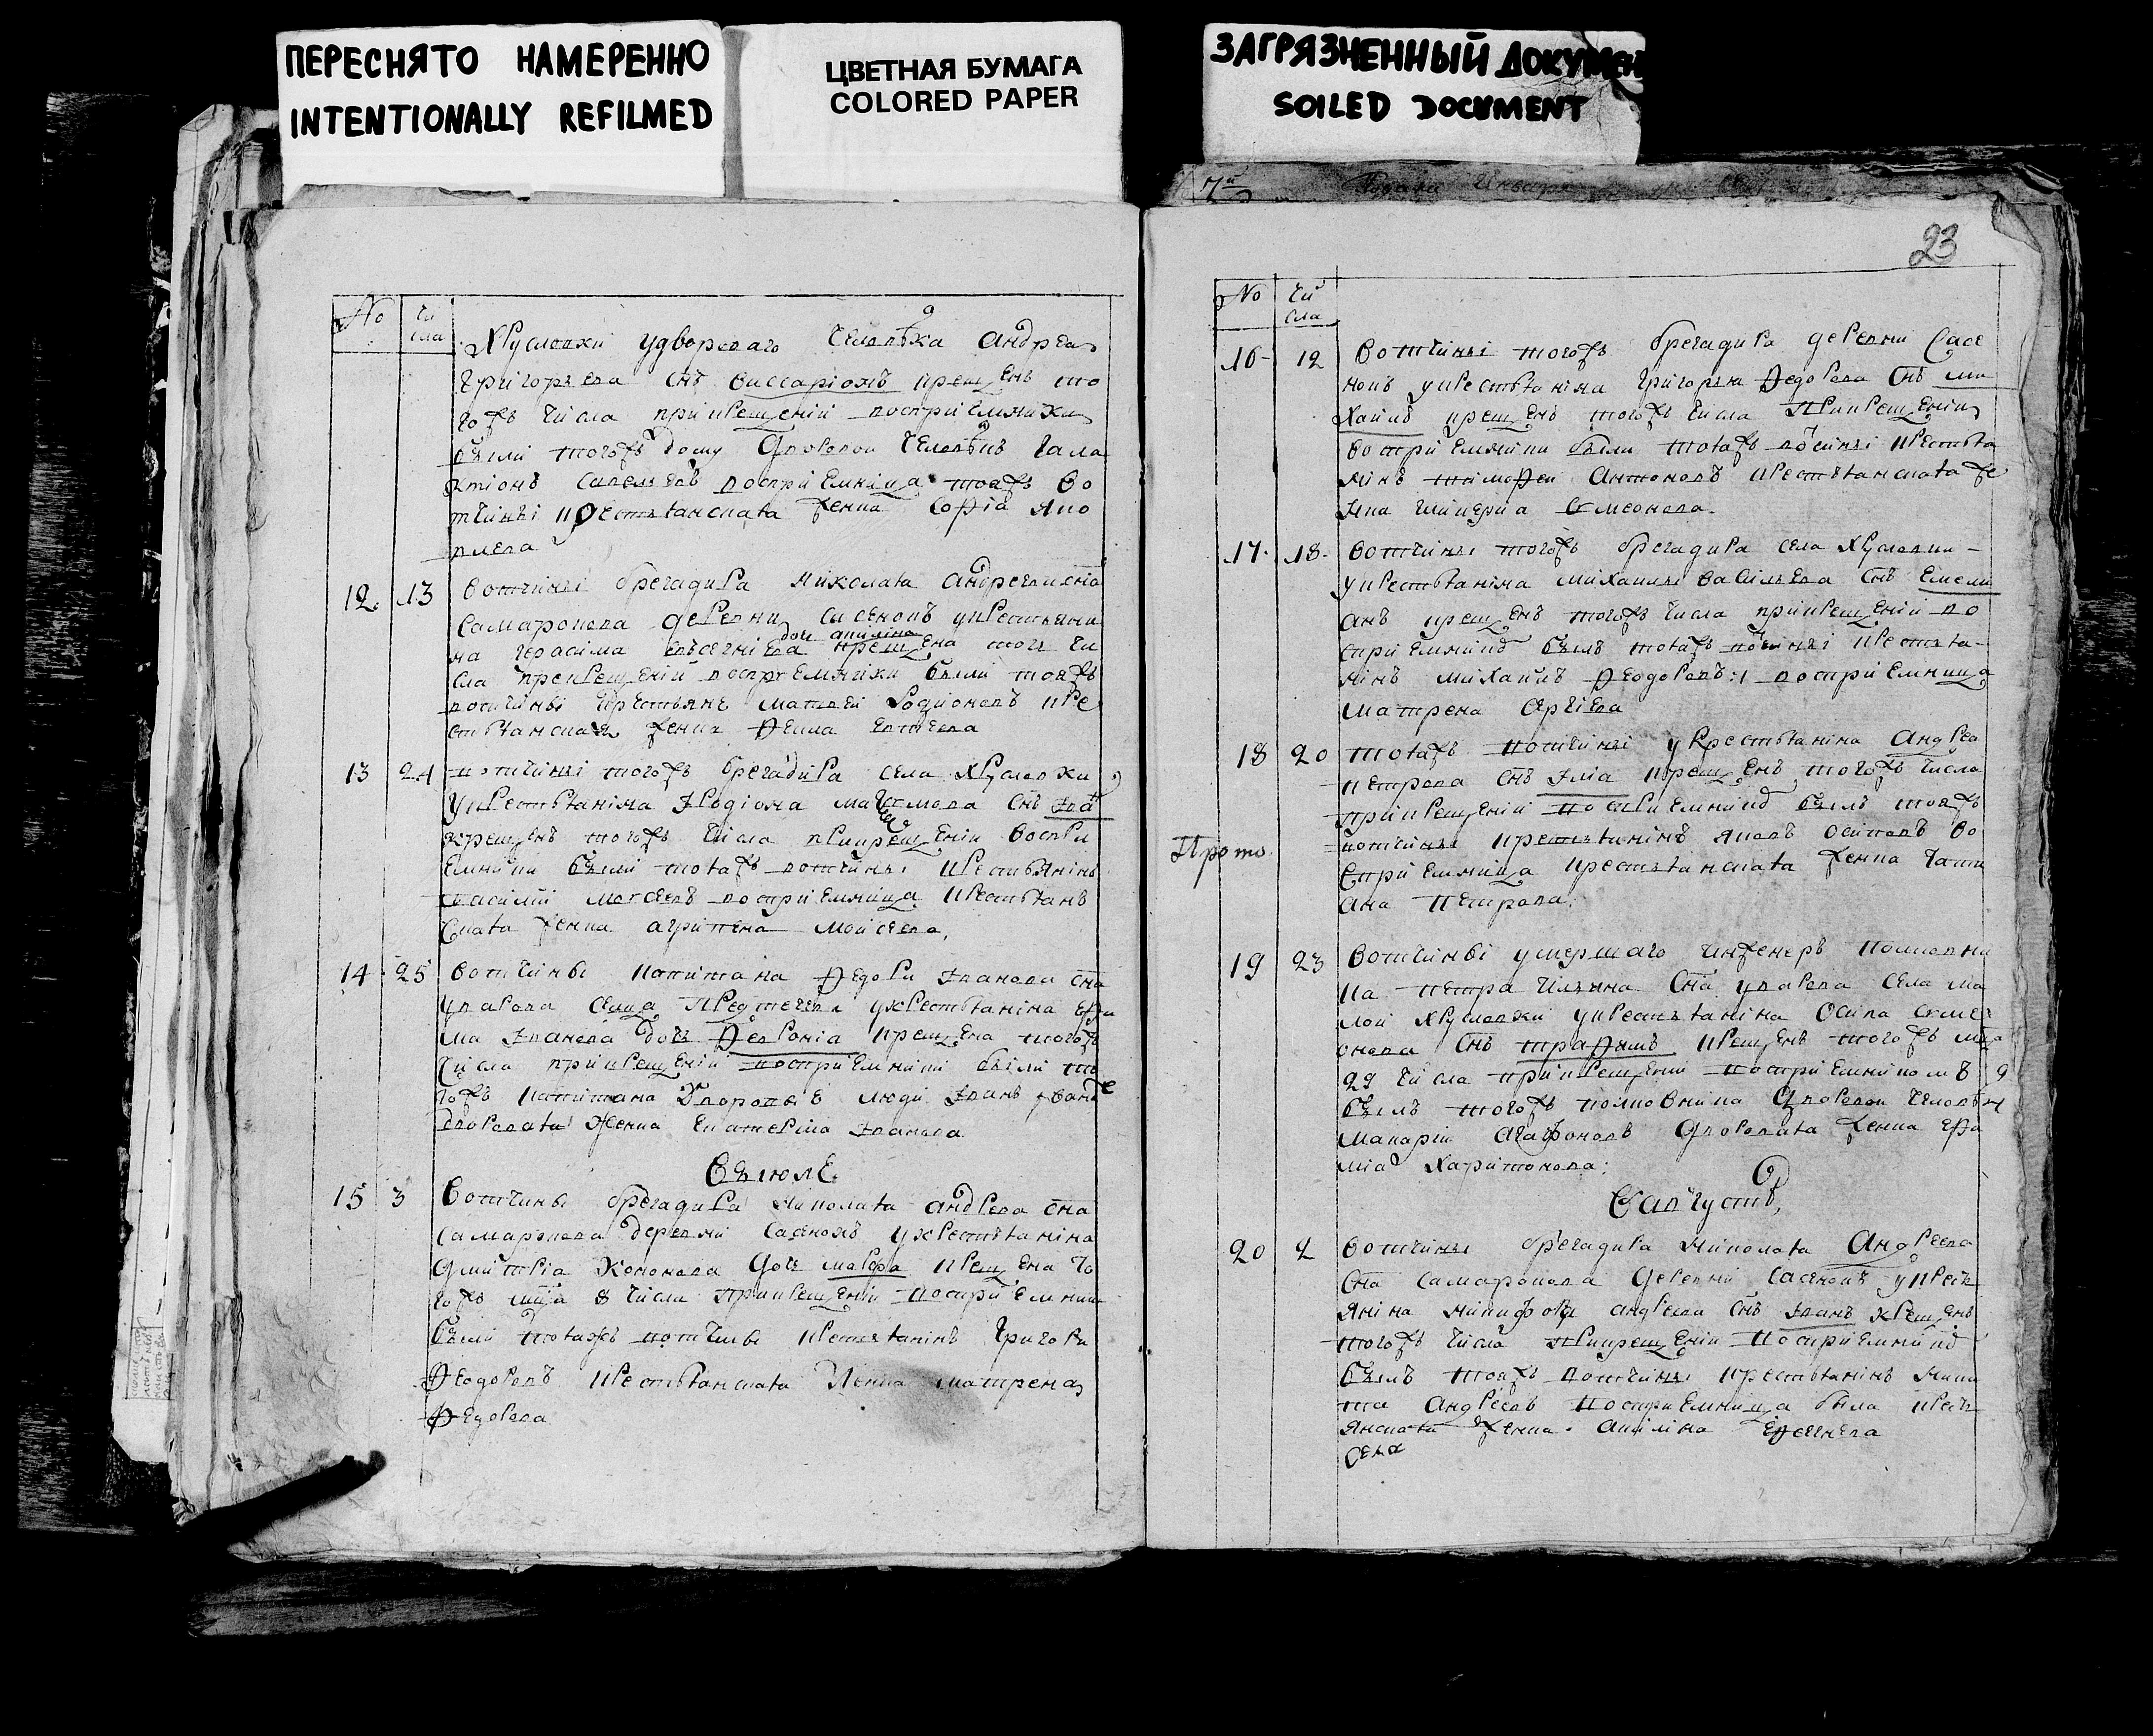 ПЕРЕСНЯТО НАМЕРЕННО
INTENTIONALLY REFILMED
ЦВЕТНАЯ БУМАГА
COLORED PAPER
ЗАГРЯЗНЕННЫЙ ДОКУМЕН
SOILED DOCUMENT
23
№ чи
сла
Хрусловки удворового человѣка андрея
григорьева снъ виссаріонъ крещенъ то
гожъ числа прикрещеніи восприемники
были тогожъ дому дворовои человѣкъ гала
ктіонъ савельевъ восприемница тояжъ во
тчины крестьянская женка софія яко
влева
12. 13 вотчины брегадира николая андреева сна
самарокова деревни сасенокъ укрестьяни
на герасима евсегніева дочь акилина крещена тогъ чи
сла прикрещеніи восприемники были тояжъ
вотчины крестьянъ матвеи родіоновъ кре
стьянская женка фекла евтеева
13 24 вотчины тогожъ брегадира села хрусловки
укрестьяніна іродіона максимова снъ іва
крещенъ тогожъ числа прикрещеніи воспри
емники были тояжъ вотчины крестьянинъ
василіи восприемница крестьянъ
ская женка агрипена моисеева
14 25 вотчины капитана федора іванова сна
уварова селца предтечева укрестьяніна ефи
ма іванова дочь февронія крещена тогожъ
числа прикрещеніи восприемники были то
гожъ капитана дворовые люди іванъ івано
дворовая женка екатерина іванова
Въіюлѣ
15 3 вотчины брегадира николая андреева сна
самарокова деревни сасенокъ укрестьяніна
дмитріа кононова дочь мавра крещена то
гожъ мца 8 числа прикрещеніи восприемник
были тояжъ вотчины крестьянінъ григори
феодоровъ крестьянская женка матрена
федорова
№ чи
сла
16 12 вотчины тогожъ брегадира деревни сасе
нокъ укрестьяніна григорья федорова снъ ми
хаилъ крещенъ тогожъ числа прикрещеніи
восприемники были тояжъ вочины крестья
нінъ тимофеи антоновъ крестьянская же
нка гликерия симеонова
17. 18. вотчины тогожъ брегадира села хрусловки
укрестьяніна михаилы васильева снъ емели
анъ крещенъ тогожъ числа прикрещеніи во
сприемникъ былъ тояжъ вочины крестья
нінъ михаилъ феодоровъ восприемница
матрена
18 20 тояжъ вотчины укрестьяніна андреа
петрова снъ іліа крещенъ тогожъ числа
прикрещеніи восприемникъ былъ тояжъ
вотчины крестьянінъ яковъ осиповъ во
сприемница крестьянская женка тати
ана петрова.
Прото
19 23 вотчины умершаго инженеръ полковни
ка петра ильина сна уварова села ма
лои хрусловки укрестьяніна осипа симе
онова снъ трафимъ крещенъ тогожъ мца
29 числа прикрещеніи восприемникомъ
былъ тогожъ полковника дворовои человѣкъ
макаріи агафоновъ дворовая женка ефи
міа харитонова:
Въавгустѣ
20 2 вотчины брегадира николая андреева
сна самарокова деревни сасенокъ укрест
яніна никифора андреева снъ іванъ крещенъ
тогожъ числа прикрещеніи восприемникъ
былъ тояжъ вотчины крестьянінъ ники
та андреевъ восприемница была крест
янская женка акилина